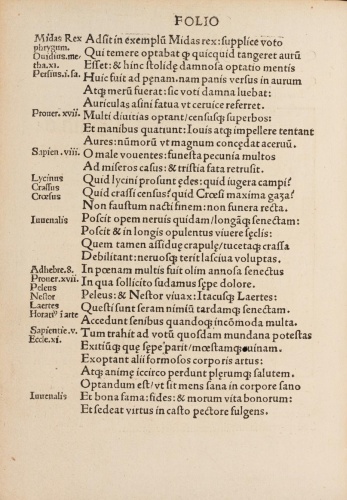 FOLIO
Midas Rex Adsit in exemplũ Midas rex: supplice voto
phrygum. Qui temere optabat ꝙ quicquid tangeret aurũ
Ouidius.me- Esset: & hinc stolidę damnosa optatio mentis
tha.xi.
Persius.i.sa. Huic fuit ad pęnam.nam panis versus in aurum
Atqꝫ merũ fuerat: sic voti damna luebat:
Auriculas asini fatua vt ceruice referret.
Prouer.xvii. Multi diuitias optant/censusqꝫ superbos:
Et manibus quatiunt: Iouis atqꝫ impellere tentant
Aures: numorũ vt magnum concędat aceruũ.
Sapien.viii. O male vouentes: funesta pecunia multos
Ad miseros casus: & tristia fata retrusit.
Lycinus Quid lycini prosunt ędes: quid iugera campi?
Crassus Quid crassi census? quid Crœsi maxima gaza?
Crœsus Non faustum nacti finem: non funera recta.
Iuuenalis Poscit opem neruis quidam/longãqꝫ senectam:
Poscit & in longis opulentus viuere sęclis:
Quem tamen assidue crapulę/tucetaqꝫ crassa
Debilitant: neruosqꝫ terit lasciua voluptas.
Adhebre.8. In pœnam multis fuit olim annosa senectus
Prouer.xvii. In qua sollicito sudamus sępe dolore.
Peleus
Nestor Peleus: & Nestor viuax: Itacusqꝫ Laertes:
Laertes Questi sunt seram nimiũ tardamqꝫ senectam.
Horatiꝰ ĩ arte Accedunt senibus quandoqꝫ incõmoda multa.
Sapientie.v. Tum trahit ad votũ quosdam mundana potestas
Eccle.xi. Exitiũqꝫ quę sępe parit/mœstamqꝫ ruinam.
Exoptant alii formosos corporis artus:
Atqꝫ animę iccirco perdunt plęrumqꝫ salutem.
Optandum est/vt sit mens sana in corpore sano
Iuuenalis Et bona fama: fides: & morum vita bonorum:
Et sedeat virtus in casto pectore fulgens.